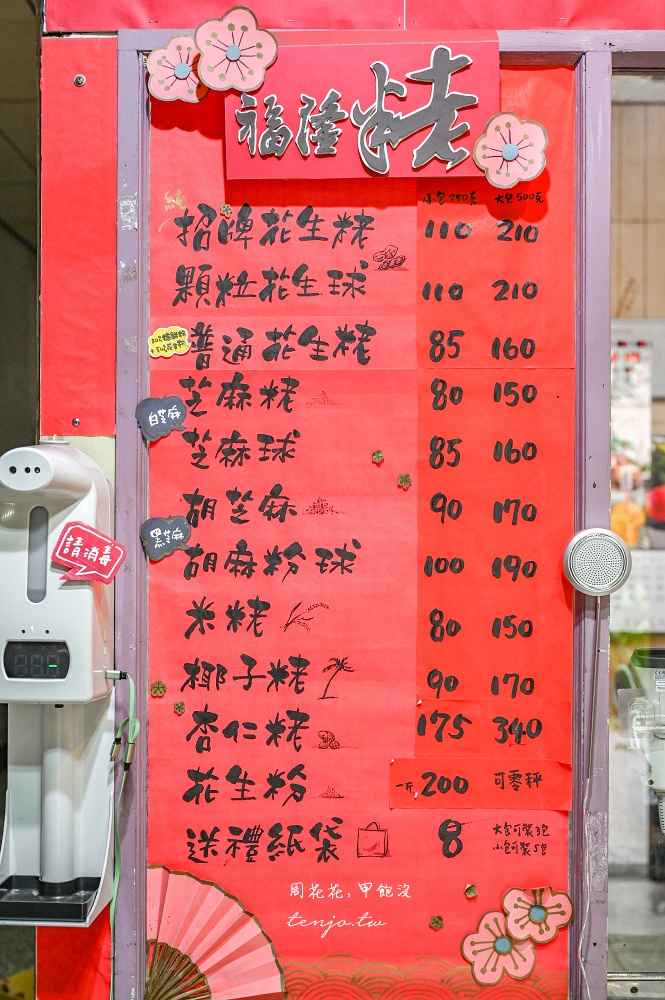 福隆粩
小包250克 大包500克
純
招牌花生粩 110 210
顆粒花生球 110 210
普通花生粩 85 160
芝麻粩 80 150
白芝麻
芝麻球 85 160
胡芝麻 90 170
黑芝麻
胡麻粉球 100 190
請消毒
米粩 80 150
椰子粩 90 170
杏仁粩 175 340
花生粉 一斤200 可零秤
送禮紙袋 8 大包可裝3包
小包可裝5包
周花花，甲飽沒
tenjo.tw